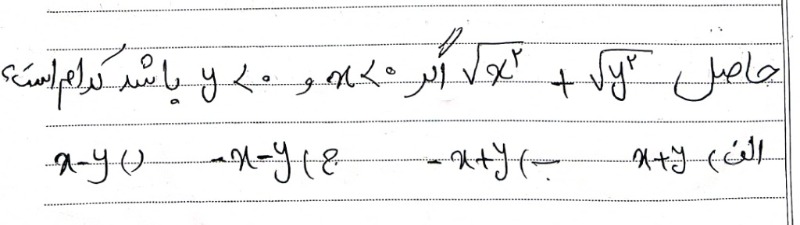 حاصل √x² + √y² اگر x<۰ و y<۰ باشد کدام است؟
الف) x+y ب) -x+y ج) -x-y د) x-y